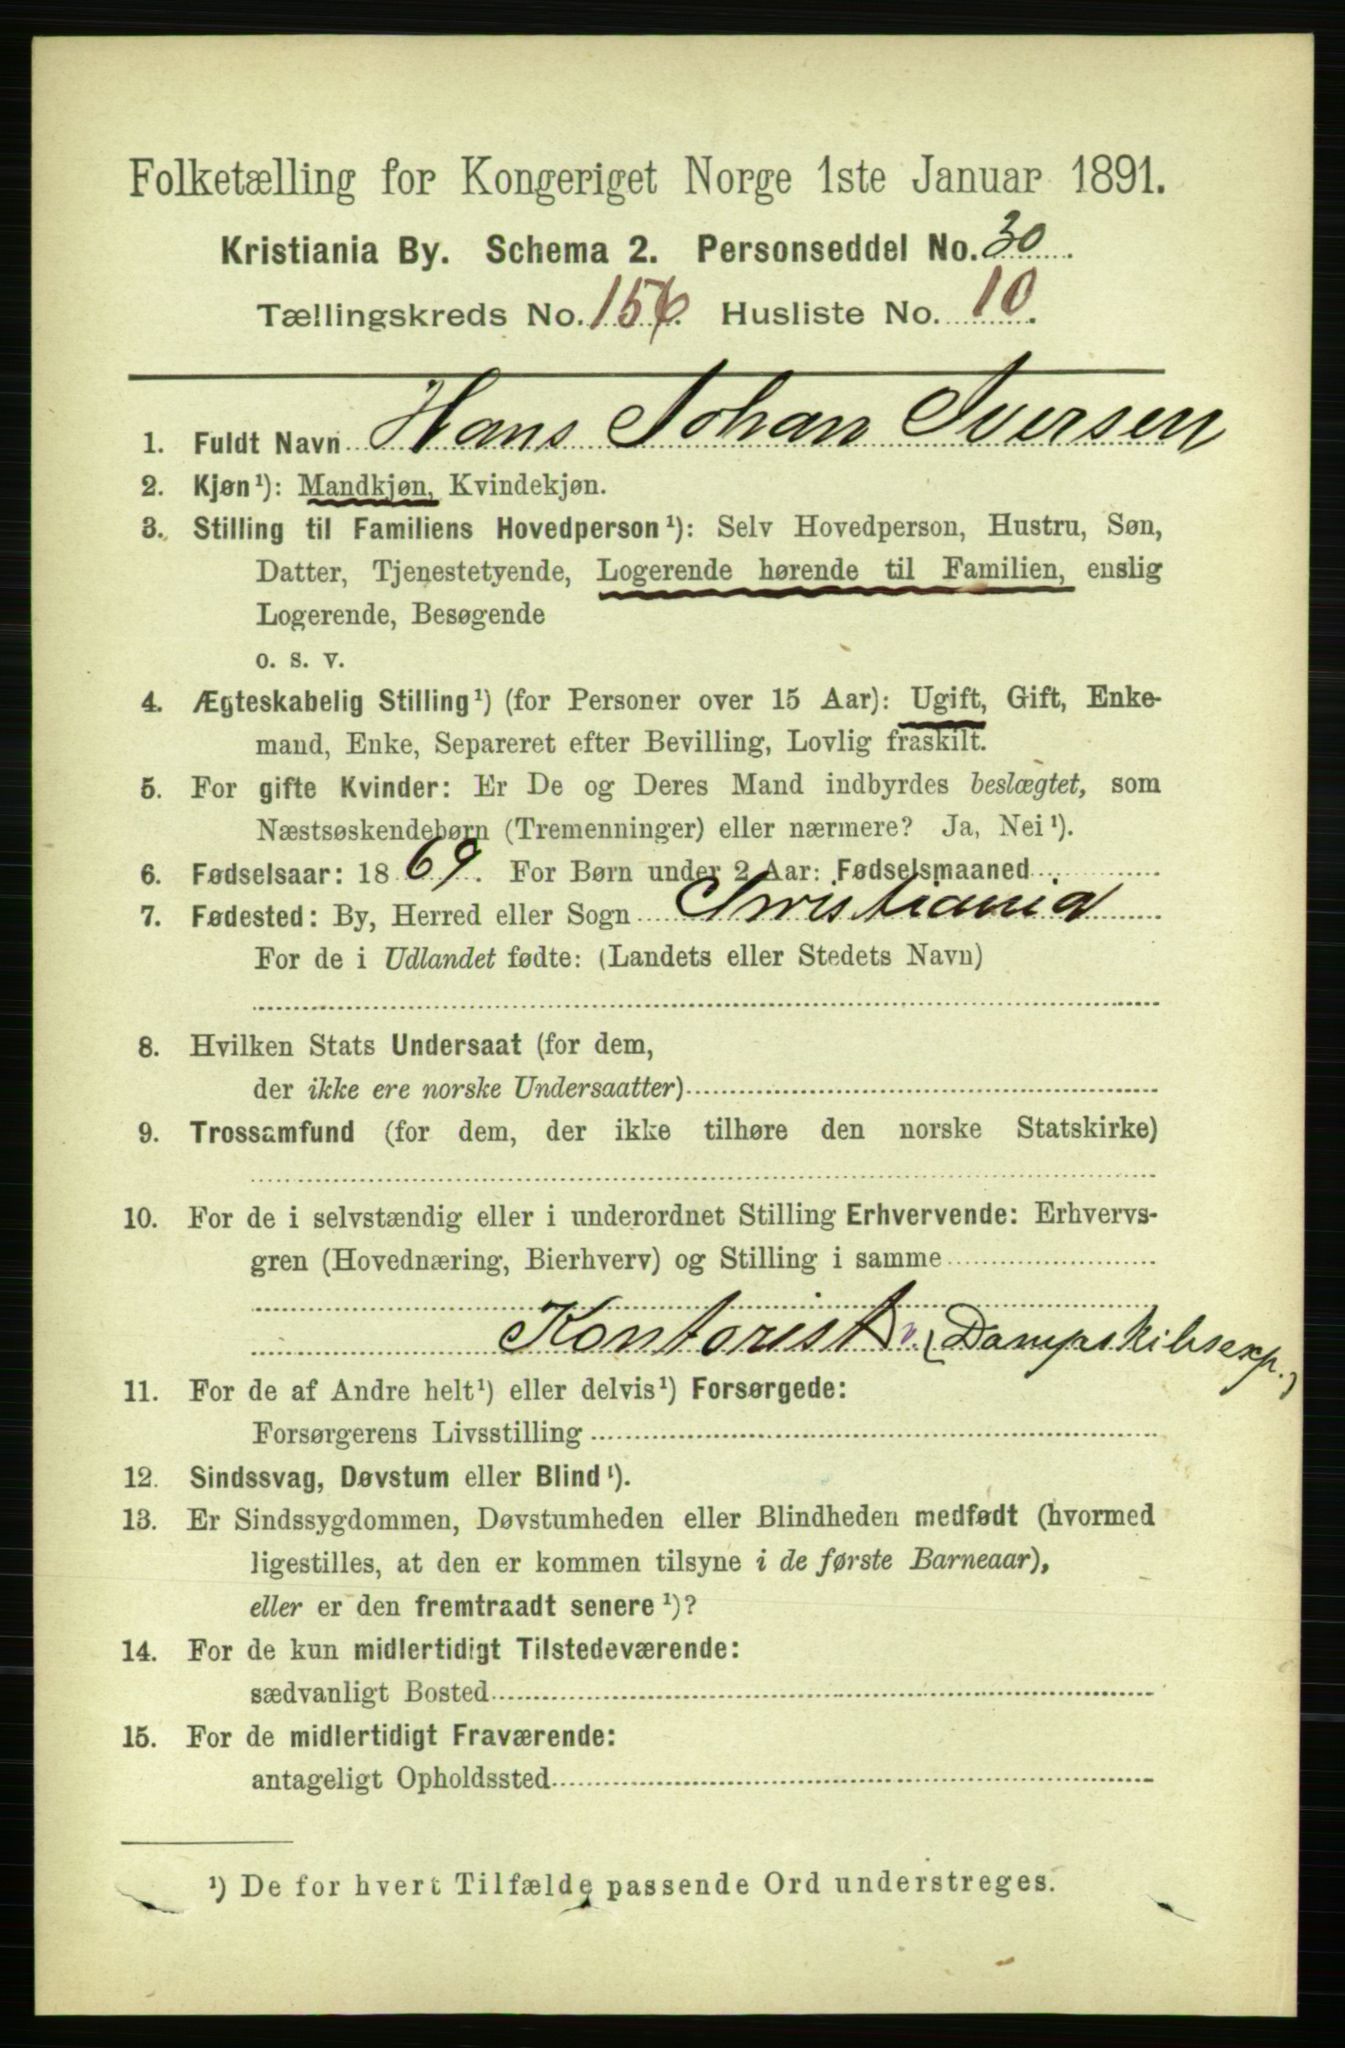 Folketælling for Kongeriget Norge 1ste Januar 1891.
Kristiania By. Schema 2. Personseddel No. 30.
Tællingskreds No. 156. Husliste No. 10.
1. Fuldt Navn Hans Johan Iversen
2. Kjøn¹): Mandkjøn, Kvindekjøn.
3. Stilling til Familiens Hovedperson¹): Selv Hovedperson, Hustru, Søn,
Datter, Tjenestetyende, Logerende hørende til Familien, enslig
Logerende, Besøgende
o. s. v.
4. Ægteskabelig Stilling¹) (for Personer over 15 Aar): Ugift, Gift, Enke-
mand, Enke, Separeret efter Bevilling, Lovlig fraskilt.
5. For gifte Kvinder: Er De og Deres Mand indbyrdes beslægtet, som
Næstsøskendebørn (Tremenninger) eller nærmere? Ja, Nei¹).
6. Fødselsaar: 1869. For Børn under 2 Aar: Fødselsmaaned
7. Fødested: By, Herred eller Sogn Christiania
For de i Udlandet fødte: (Landets eller Stedets Navn)
8. Hvilken Stats Undersaat (for dem,
der ikke ere norske Undersaatter)
9. Trossamfund (for dem, der ikke tilhøre den norske Statskirke)
10. For de i selvstændig eller i underordnet Stilling Erhvervende: Erhvervs-
gren (Hovednæring, Bierhverv) og Stilling i samme
Kontorist v. (Dampskibsexp.)
11. For de af Andre helt¹) eller delvis¹) Forsørgede:
Forsørgerens Livsstilling
12. Sindssvag, Døvstum eller Blind¹).
13. Er Sindssygdommen, Døvstumheden eller Blindheden medfødt (hvormed
ligestilles, at den er kommen tilsyne i de første Barneaar),
eller er den fremtraadt senere¹)?
14. For de kun midlertidigt Tilstedeværende:
sædvanligt Bosted
15. For de midlertidigt Fraværende:
antageligt Opholdssted
¹) De for hvert Tilfælde passende Ord understreges.